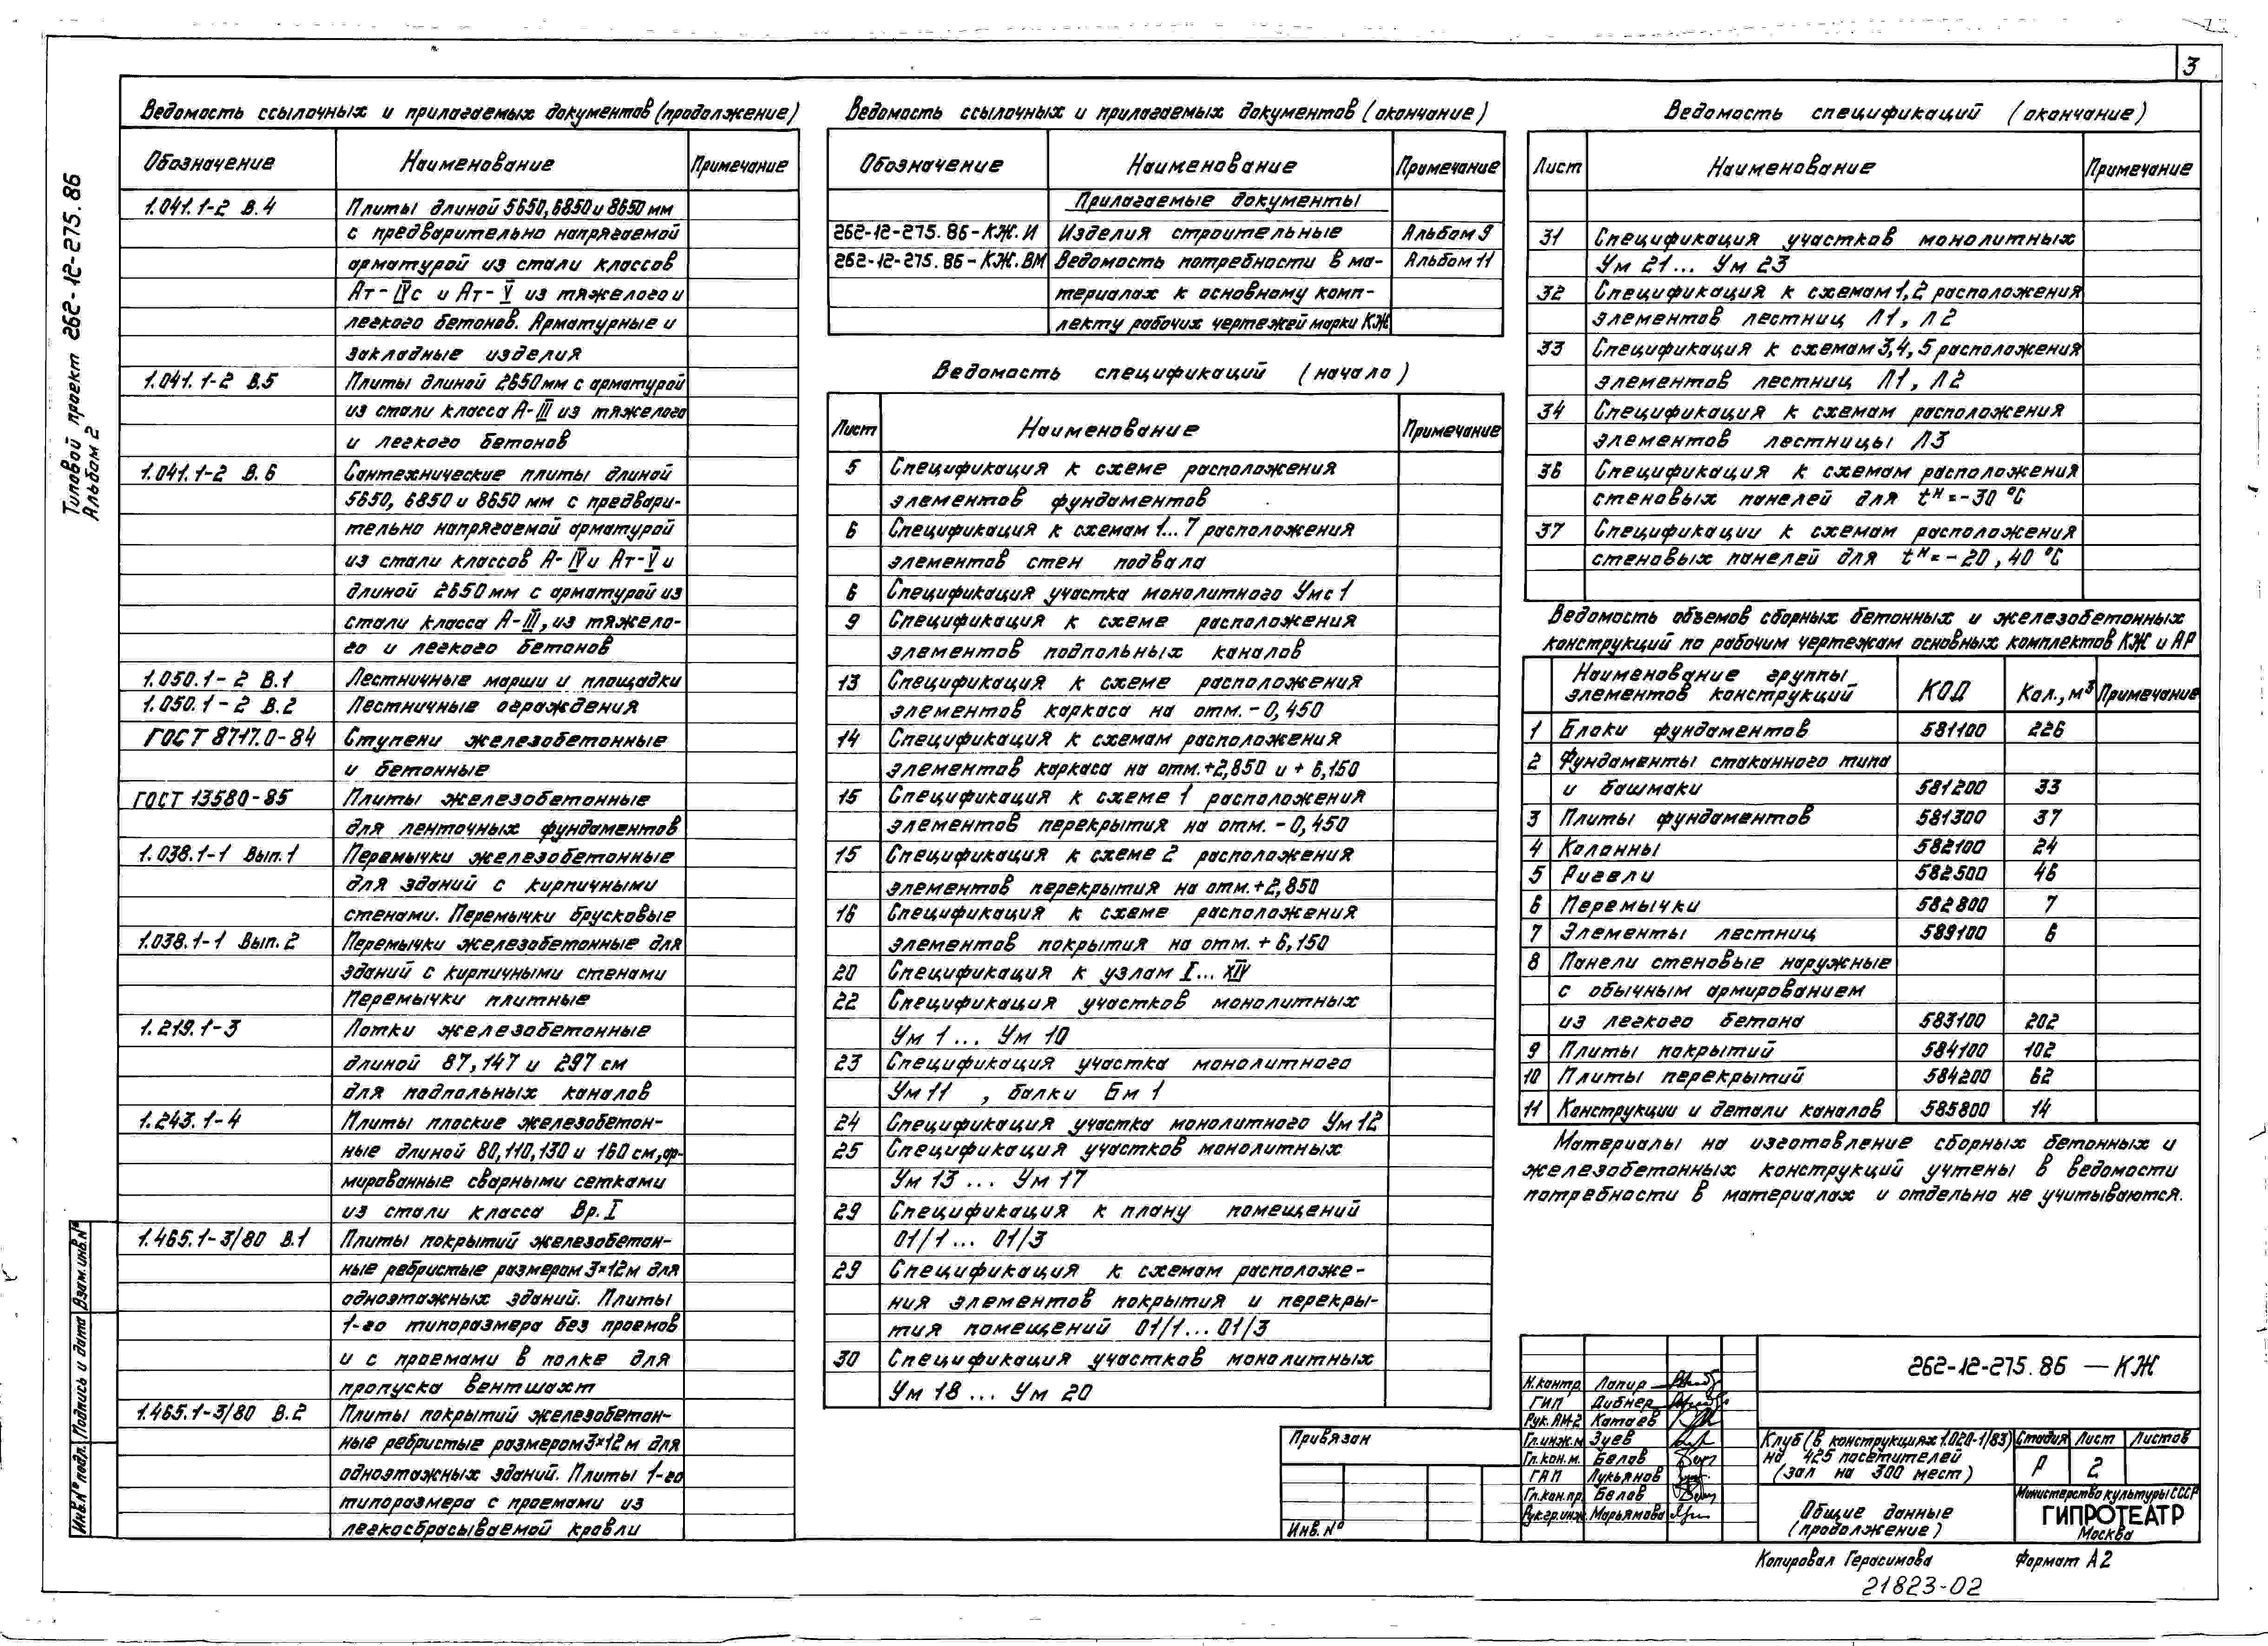 3
Типовой проект 262-12-275.86
Альбом 2
Ведомость ссылочных и прилагаемых документов (продолжение)
Обозначение Наименование Примечание
1.041.1-2 В.4 Плиты длиной 5650, 6850 и 8650 мм
с предварительно напрягаемой
арматурой из стали классов
Ат-IVс и Ат-V из тяжелого и
легкого бетонов. Арматурные и
закладные изделия
1.041.1-2 В.5 Плиты длиной 2650 мм с арматурой
из стали класса А-III из тяжелого
и легкого бетонов
1.041.1-2 В.6 Сантехнические плиты длиной
5650, 6850 и 8650 мм с предвари-
тельно напрягаемой арматурой
из стали классов А-IV и Ат-V и
длиной 2650 мм с арматурой из
стали класса А-III, из тяжело-
го и легкого бетонов
1.050.1-2 В.1 Лестничные марши и площадки
1.050.1-2 В.2 Лестничные ограждения
ГОСТ 8717.0-84 Ступени железобетонные
и бетонные
ГОСТ 13580-85 Плиты железобетонные
для ленточных фундаментов
1.038.1-1 Вып.1 Перемычки железобетонные
для зданий с кирпичными
стенами. Перемычки брусковые
1.038.1-1 Вып.2 Перемычки железобетонные для
зданий с кирпичными стенами
Перемычки плитные
1.219.1-3 Лотки железобетонные
длиной 87, 147 и 297 см
для подпольных каналов
1.243.1-4 Плиты плоские железобетон-
ные длиной 80, 110, 130 и 160 см, ар-
мированные сварными сетками
из стали класса Вр.I
1.465.1-3/80 В.1 Плиты покрытий железобетон-
ные ребристые размером 3×12м для
одноэтажных зданий. Плиты
1-го типоразмера без проемов
и с проемами в полке для
пропуска вентшахт
1.465.1-3/80 В.2 Плиты покрытий железобетон-
ные ребристые размером 3×12м для
одноэтажных зданий. Плиты 1-го
типоразмера с проемами из
легкосбрасываемой кровли
Ведомость ссылочных и прилагаемых документов (окончание)
Обозначение Наименование Примечание
Прилагаемые документы
262-12-275.86-КЖ.И Изделия строительные Альбом 9
262-12-275.86-КЖ.ВМ Ведомость потребности в ма- Альбом 11
териалах к основному комп-
лекту рабочих чертежей марки КЖ
Ведомость спецификаций (начало)
Лист Наименование Примечание
5 Спецификация к схеме расположения
элементов фундаментов
6 Спецификация к схемам 1...7 расположения
элементов стен подвала
6 Спецификация участка монолитного Умс1
9 Спецификация к схеме расположения
элементов подпольных каналов
13 Спецификация к схеме расположения
элементов каркаса на отм. -0,450
14 Спецификация к схемам расположения
элементов каркаса на отм. +2,850 и +6,150
15 Спецификация к схеме 1 расположения
элементов перекрытия на отм. -0,450
15 Спецификация к схеме 2 расположения
элементов перекрытия на отм. +2,850
16 Спецификация к схеме расположения
элементов покрытия на отм. +6,150
20 Спецификация к узлам I...XIV
22 Спецификация участков монолитных
Ум 1... Ум 10
23 Спецификация участка монолитного
Ум 11 , балки Бм 1
24 Спецификация участка монолитного Ум 12
25 Спецификация участков монолитных
Ум 13... Ум 17
29 Спецификация к плану помещений
01/1... 01/3
29 Спецификация к схемам расположе-
ния элементов покрытия и перекры-
тия помещений 01/1...01/3
30 Спецификация участков монолитных
Ум 18... Ум 20
Ведомость спецификаций (окончание)
Лист Наименование Примечание
31 Спецификация участков монолитных
Ум 21... Ум 23
32 Спецификация к схемам 1, 2 расположения
элементов лестниц Л1, Л2
33 Спецификация к схемам 3, 4, 5 расположения
элементов лестниц Л1, Л2
34 Спецификация к схемам расположения
элементов лестницы Л3
36 Спецификация к схемам расположения
стеновых панелей для tн=-30 °С
37 Спецификации к схемам расположения
стеновых панелей для tн=-20, 40 °С
Ведомость объемов сборных бетонных и железобетонных
конструкций по рабочим чертежам основных комплектов КЖ и АР
Наименование группы элементов конструкций КОД Кол., м³ Примечание
1 Блоки фундаментов 581100 226
2 Фундаменты стаканного типа
и башмаки 581200 33
3 Плиты фундаментов 581300 37
4 Колонны 582100 24
5 Ригели 582500 46
6 Перемычки 582800 7
7 Элементы лестниц 589100 6
8 Панели стеновые наружные
с обычным армированием
из легкого бетона 583100 202
9 Плиты покрытий 584100 102
10 Плиты перекрытий 584200 62
11 Конструкции и детали каналов 585800 14
Материалы на изготовление сборных бетонных и
железобетонных конструкций учтены в ведомости
потребности в материалах и отдельно не учитываются.
Привязан
Инв. №
262-12-275.86 — КЖ
Н.контр. Лапир
ГИП Дибнер
Рук. АМ-2 Катаев
Гл.инж.м Зуев
Гл.кон.м. Белов
ГАП Лукьянов
Гл.кон.пр. Белов
Рук.гр.инж. Марьямова
Клуб (в конструкциях 1.020-1/83)
на 425 посетителей
(зал на 300 мест)
Стадия Лист Листов
Р 2
Общие данные
(продолжение)
Министерство культуры СССР
ГИПРОТЕАТР
Москва
Копировал Герасимова Формат А2
21823-02
Взам. инв. №
Подпись и дата
Инв. № подл.